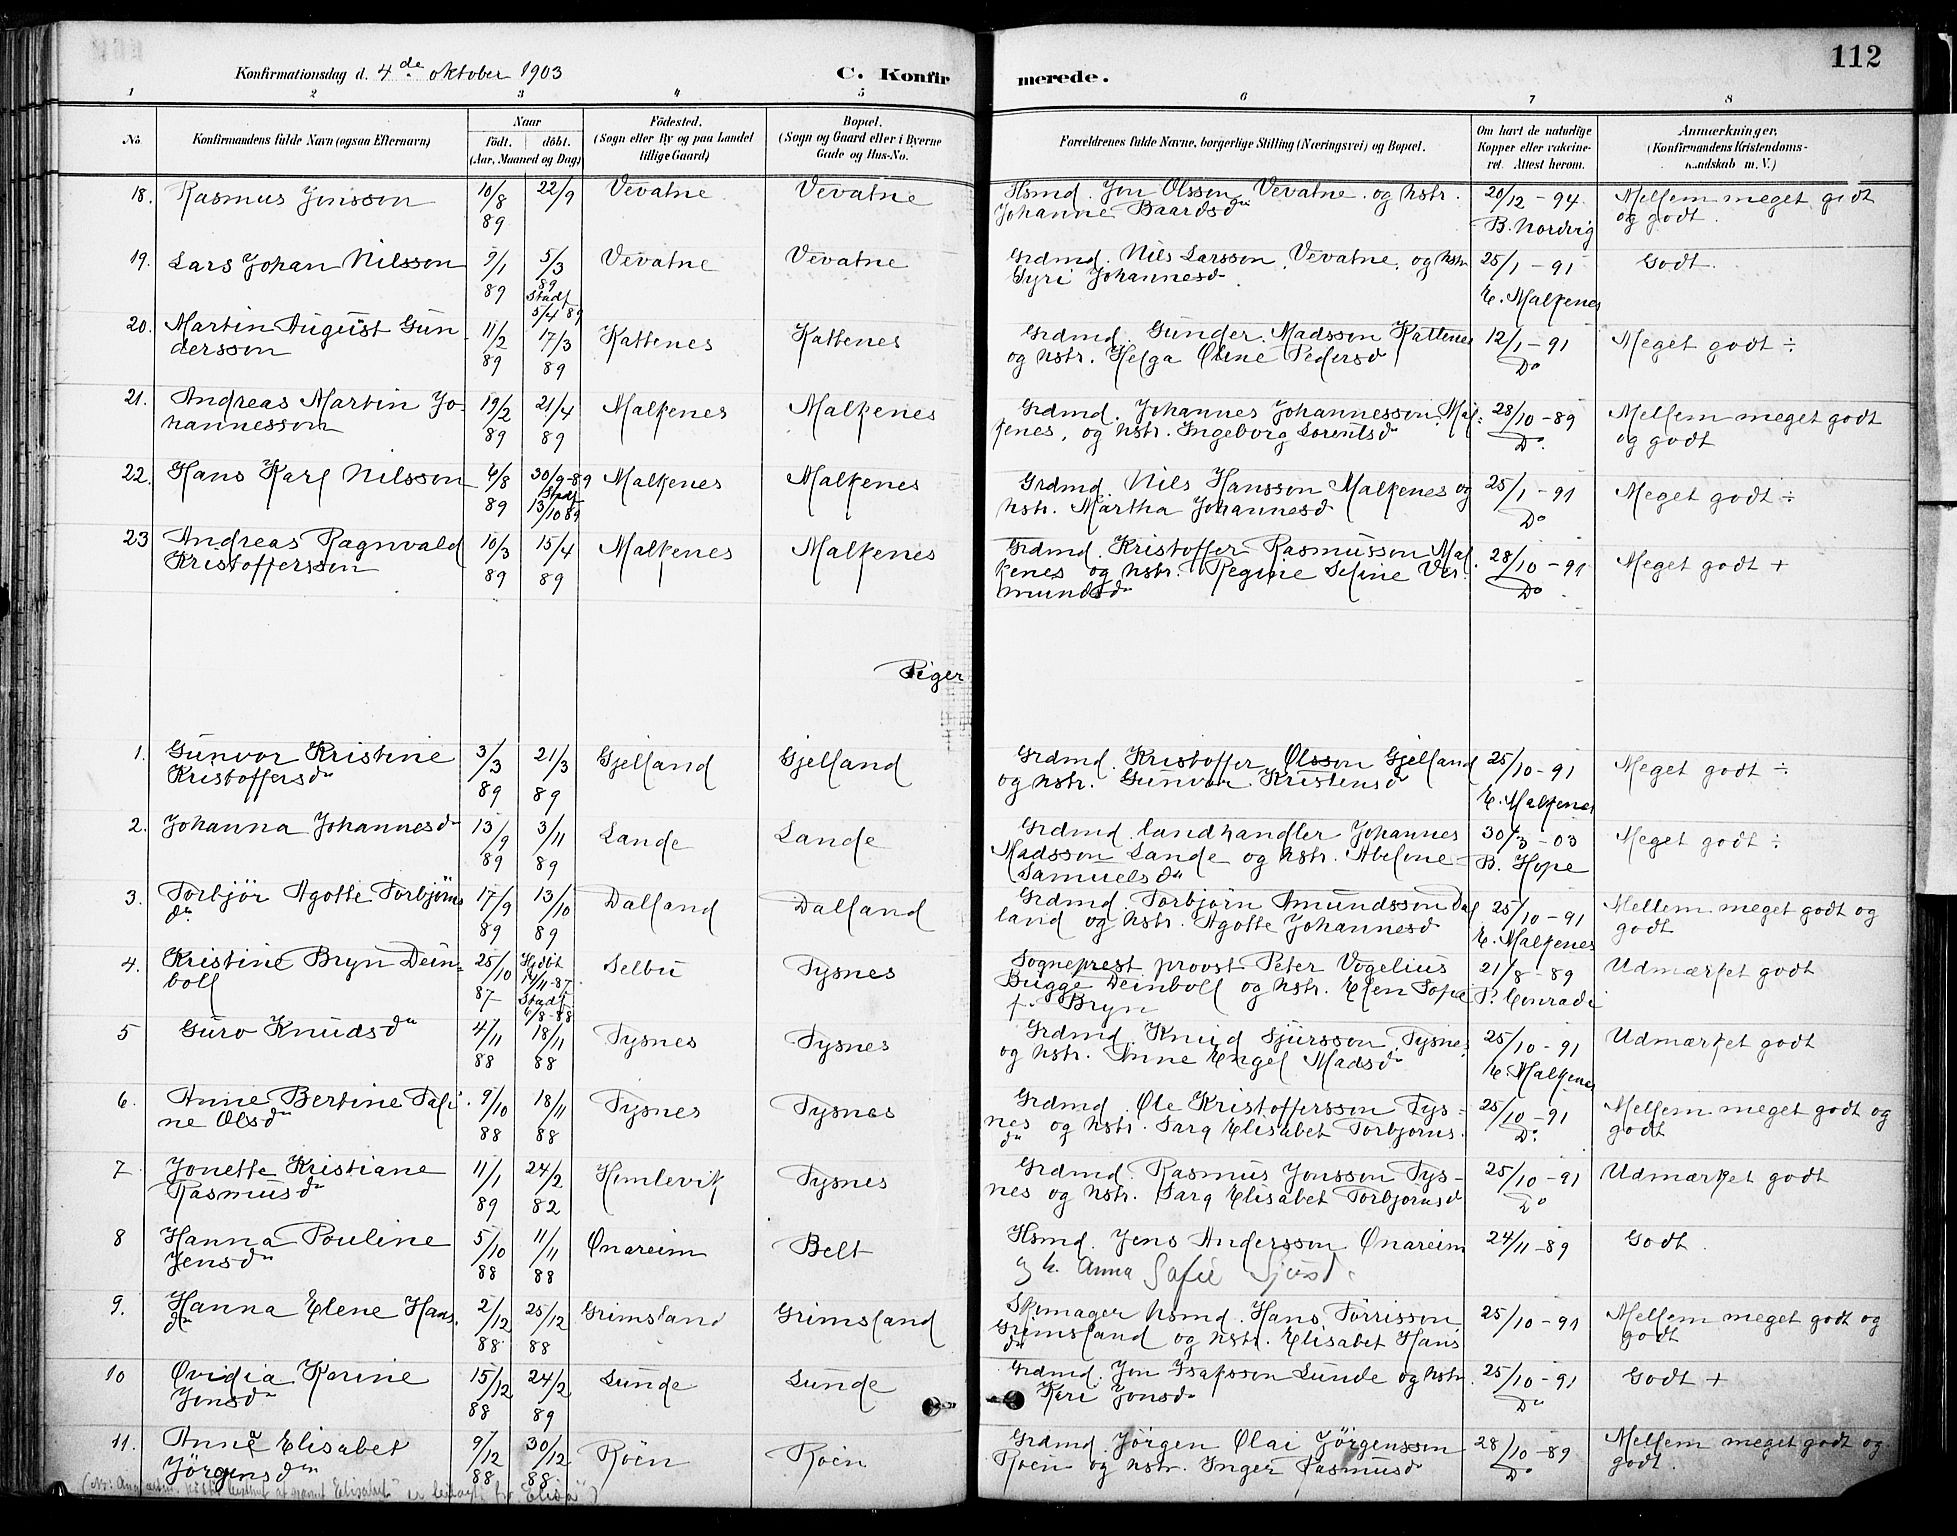 112
Konfirmationsdag d. 4de oktober 1903 C. Konfir merede.
1 2 3 4 5 6 7 8
No. Konfirmandens fulde Navn (ogsaa Efternavn) Naar født. døbt. (Aar, Maaned og Dag) Fødested. (Sogn eller By og paa Landet tillige Gaard) Bopæl. (Sogn og Gaard eller i Byerne Gade og Hus-No. Forældrenes fulde Navne, borgerlige Stilling (Næringsvei) og Bopæl. Om havt de naturlige Kopper eller vakcineret. Attest herom. Anmærkninger, (Konfirmandens Kristendomskundskab m. V.)
18. Rasmus Jonsson 10/8 89 22/9 Vevatne Vevatne Hsmd. Jon Olsson Vevatne. og hstr. 20/12 - 94 Mellem meget godt
Johanne Baardsdr B. Nordvig og godt.
19. Lars Johan Nilsson 9/1 89 5/3 89 Stadf. 5/4 89 Vevatne Vevatne Grdmd. Nils Larsson, Vevatne, og hstr 25/1 - 91 Godt.
Gyri Johannesd. E. Malkenes
20. Martin August Gun 11/2 89 17/3 89 Kattenes Kattenes Grdmd. Gunder Madsson Kattenes 12/1 - 91 Meget godt ÷
dersson og hstr. Helga Oline Pedersd Do
21. Andreas Martin Jo- 19/2 89 21/4 89 Malkenes Malkenes Grdmd. Johannes Johannesson Mal- 28/10 - 89 Mellem meget godt
hannesson kenes, og hstr. Ingeborg Lorentsdr Do. og godt
22. Hans Karl Nilsson 6/8 89 30/9-89 Stadf. 13/10 89 Malkenes Malkenes Grdmd. Nils Hansson Malkenes og 25/1 - 91 Meget godt ÷
hstr. Martha Johannesd Do
23 Andreas Ragnvald 10/3 89 15/4 89 Malkenes Malkenes Grdmd. Kristoffer Rasmusson Mal 28/10 - 91 Meget godt +
Kristoffersson kenes og hstr. Regine Seline Ver- Do
mundsdr
Piger
1. Gunvor Kristine 3/3 89 21/3 89 Gjelland Gjelland Grdmd. Kristoffer Olsson Gjelland 25/10 - 91 Meget godt ÷
Kristoffersdr og hstr. Gunvor Kristensdr E. Malkenes
2. Johanna Johannesdr 13/9 89 3/11 89 Lande Lande Grdmd. landhandler Johannes 30/3 - 03 Meget godt ÷
Madsson Lande og hstr. Abelone B. Hope
Samuelsdr
3. Torbjør Agotte Torbjørns 17/9 89 13/10 89 Dalland Dalland Grdmd. Torbjørn Amundsson Dal 25/10 - 91 Mellem meget godt og
dr land og hstr. Agotte Johannesd E. Malkenes godt
4. Kristine Bryn Dein- 25/10 87 Hjdøbt 14/11-87 Stadf. 6/8-88 Selbu Tysnes Sogneprest provst Peter Vogelius 21/8 - 89 Udmærket godt
boll Bugge Deinboll og hstr. Elen Sofie P. Conradi
f. Bryn
5 Guro Knudsdr 4/11 88 18/11 88 Tysnes Tysnes Grdmd. Knud Sjursson Tysnes 25/10 - 91 Udmærket godt
og hstr. Anne Engel Madsdr E. Malkenes
6. Anne Bertine Tali 9/10 88 18/11 88 Tysnes Tysnes Grdmd. Ole Kristoffersson Tys- 25/10 - 91 Mellem meget godt og
ne Olsdr nes og hstr. Sara Elisabet Torbjørns Do. godt
dr
7 Jonette Kristiane 11/1 89 24/2 82 Humlevik Tysnes Grdmd. Rasmus Jonsson Tys- 25/10 - 91 Udmærket godt
Rasmusdr nes og hstr. Sara Elisabet Torbjørnsd Do
8 Hanna Pouline 5/10 88 11/11 88 Onareim Belt Hsmd. Jens Andersson Onareim 24/11 - 89 Godt.
Jensdr og h. Anna Sofie Sjursd.
9. Hanna Elene Hans 2/12 88 25/12 88 Grimsland Grimsland Skomager hsmd. Hans Torrisson 25/10 - 91 Mellem meget godt og
dr Grimsland og hstr. Elisabet Hans godt
dr
10 Ovidia Karine 15/12 88 24/2 89 Sunde Sunde Grdmd. Jon Isaksson Sunde og hstr 25/10 - 91 Godt +
Jonsdr Kari Jonsd Do
11. Anna Elisabet 9/12 88 30/12 88 Roen Roen Grdmd. Jørgen Olai Jørgensson 28/10 - 89 Mellem meget godt og
Jørgensdr Roen og hstr. Inger Rasmusd Do godt.
Elisabet" er